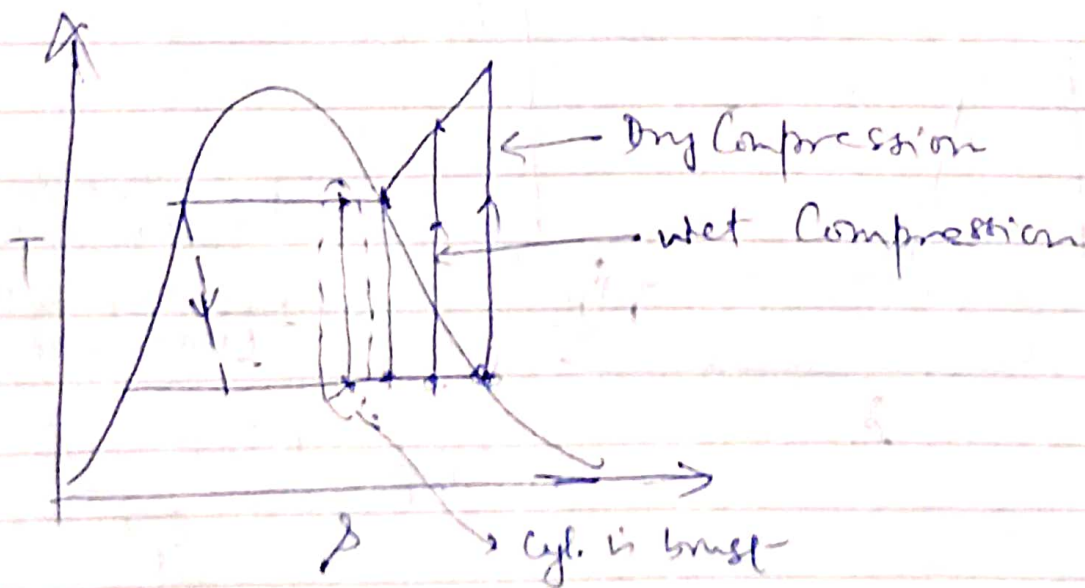 Dry Compression
T
wet Compression
s
cyl. is brust